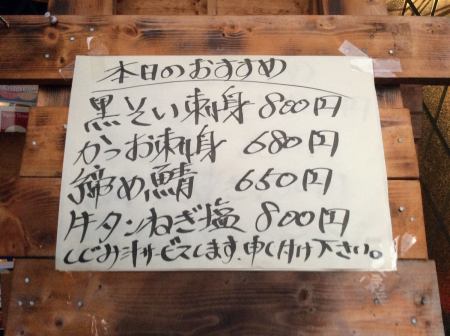 本日のおすすめ
黒そい刺身 800円
かつお刺身 680円
締め鯖 650円
牛タンねぎ塩 800円
しじみ汁サービスします、申し付け下さい。